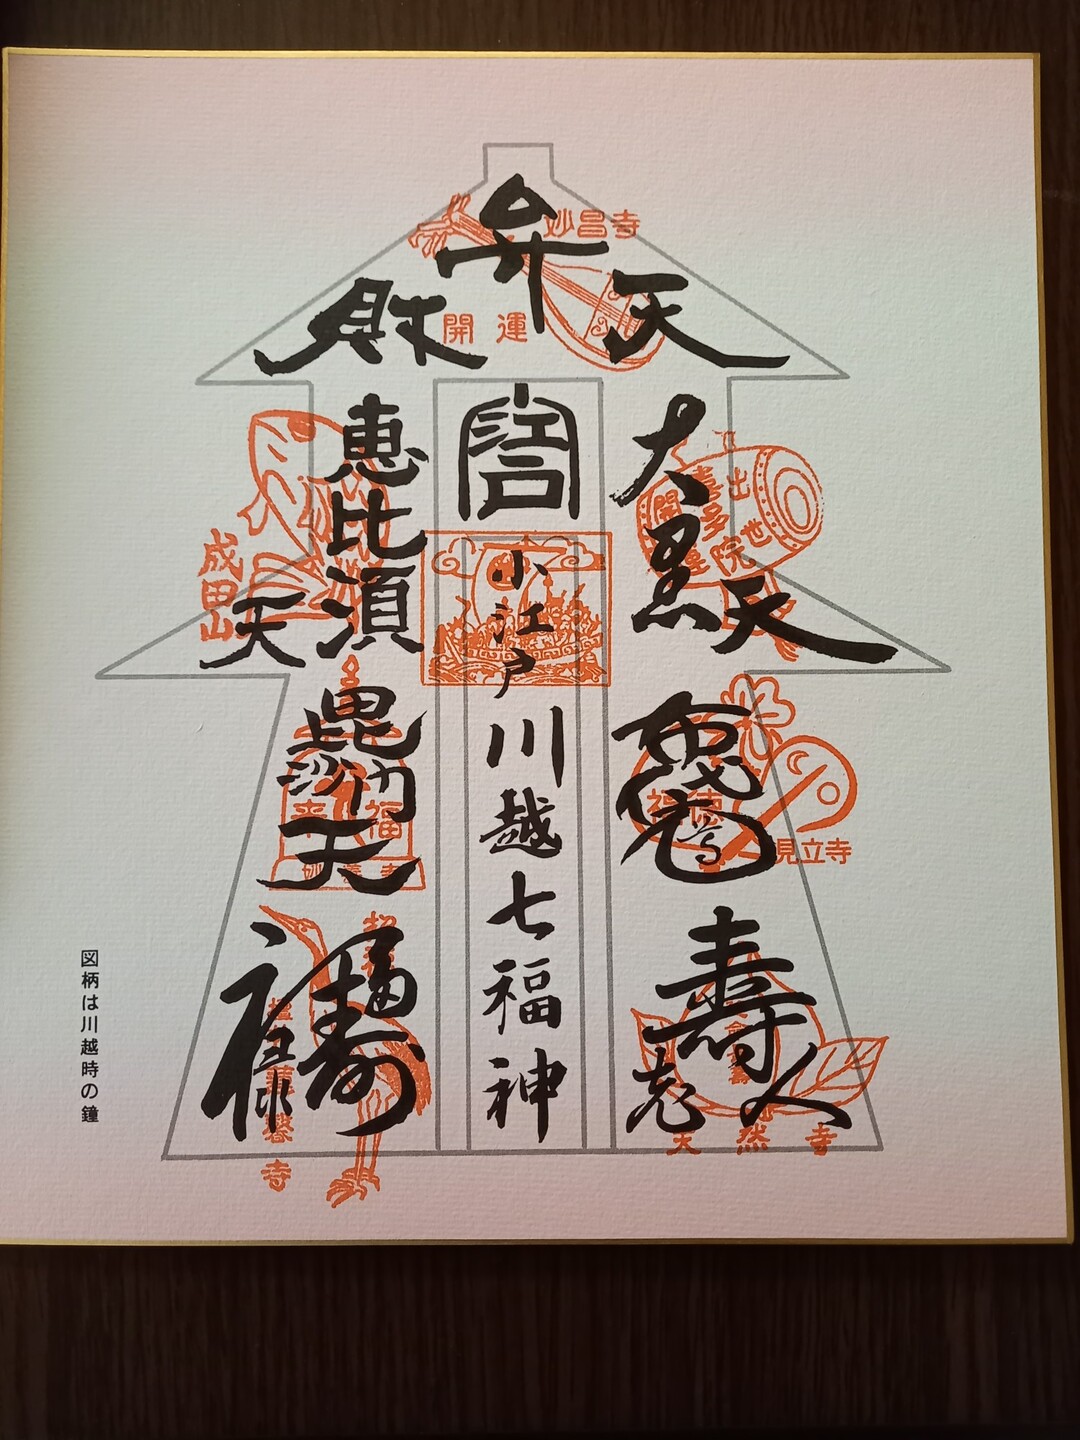 弁財天
妙昌寺
開運
大黒天
出世
喜多院
恵比須天
成田山
小江戸
小江戸川越七福神
布袋尊
見立寺
毘沙門天
来福
妙善寺
寿老人
天然寺
福禄寿
図柄は川越時の鐘